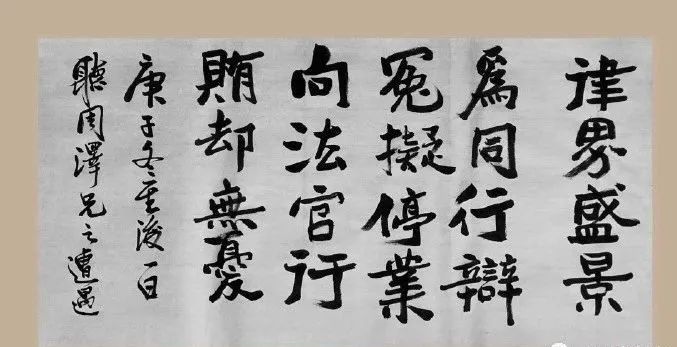 律界盛景
爲同行辯
冤擬停業
向法官行
賄却無憂
庚子冬至後一日
聽周澤兄之遭遇